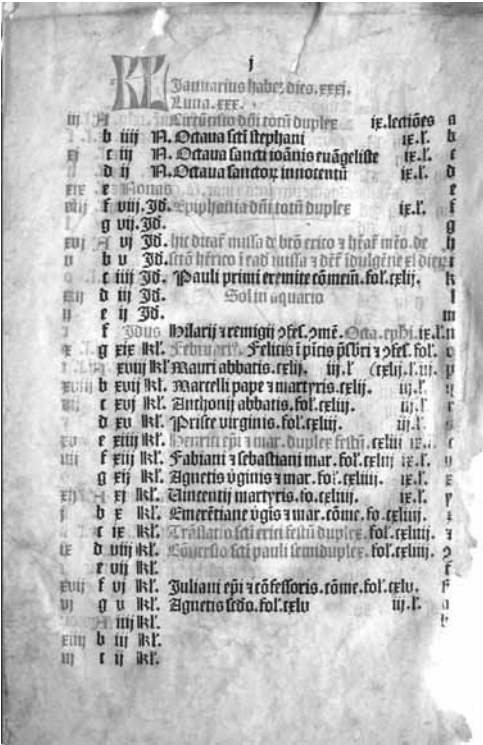 j
KL Januarius habet dies .xxxj.
Luna .xxx.
iij A Circūcisio dñi totū duplex ix. lectiōes a
b iiij N. Octaua scti stephani ix.l'. b
xj c iij N. Octaua sancti ioānis euāgeliste ix.l'. c
d ij N. Octaua sanctoꝝ innocentū ix.l'. d
xix e Nonas e
viij f viij. Jd'. Epiphania dñi totū duplex ix.l'. f
g vij. Jd'. g
xvj A vj Jd'. hic dicat' missa de btō erico ⁊ h
v b v Jd'. i
c iiij Jd'. Pauli primi eremite cōmem. fol'. cxlij. k
xiij d iij Jd'. Sol in aquario l
e ij Jd'. m
f Jdus Hilarij ⁊ remigij ꝯfes. ꝯmē. Octa. ephi. ix.l'. n
x g xix kl'. Februarij. Felicis ī pīcis ꝯfes. fol'. o
xviij kl' Mauri abbatis. cxlij. iij.l' (cxlj. l'. iij. p
xviij b xvij kl'. Marcelli pape ⁊ martyris. cxlij. iij.l'. q
vij c xvj kl'. Anthonij abbatis. fol'. cxliij. iij.l'. r
d xv kl'. Prisce virginis. fol'. cxliij. iij.l'. s
xv e xiiij kl'. Henrici epi ⁊ mar. duplex festū. cxliij ix.l'.
iiij f xiij kl'. Fabiani ⁊ sebastiani mar. fol'. cxliij ix.l'.
g xij kl'. Agnetis v̄ginis ⁊ mar. fo'. cxliiij. ix.l'. x
xij A xj kl'. Vincentij martyris. fo. cxliiij. ix.l'. y
j b x kl'. Emerētiane v̄gis ⁊ mar. cōme. fo. cxliiij. z
c ix kl'. Trāslatio scti erici festū duplex. fol'. cxliiij. ⁊
ix d viij kl'. Cōuersio scti pauli semiduplex. fol'. cxliiij. ꝯ
e vij kl'.
xvij f vj kl'. Juliani epi ⁊ cōfessoris. cōme. fol'. cxlv.
vj g v kl'. Agnetis scdo. fol'. cxlv iij.l'. a
A iiij kl'. b
xiiij b iij kl'.
iij c ij kl'.